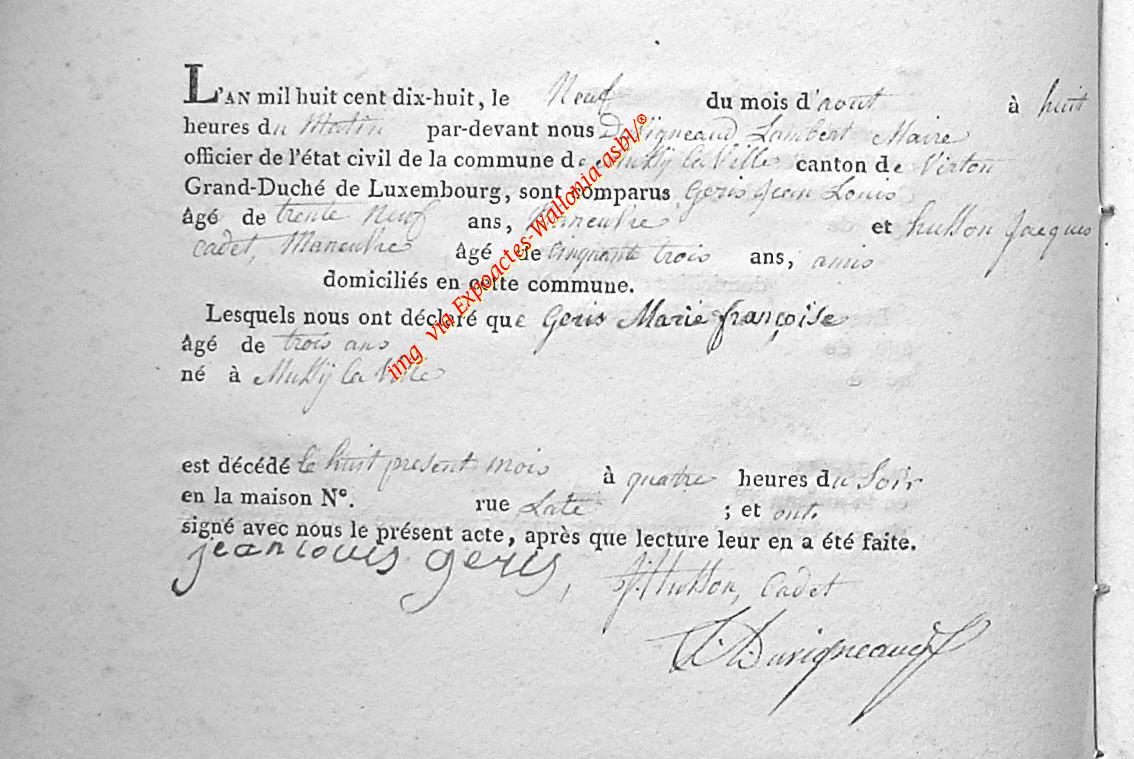 L'AN mil huit cent dix-huit, le Neuf du mois d'aout à huit
heures du Matin par-devant nous Duvigneaud Lambert Maire
officier de l'état civil de la commune de Mussÿ la Ville canton de Virton
Grand-Duché de Luxembourg, sont comparus Geris Jean Louis,
âgé de trente Neuf ans, Maneuvre et husson Jacques
cadet, Maneuvre âgé de Cinquante trois ans, amis
domiciliés en cette commune.
Lesquels nous ont déclaré que Geris Marie françoise
âgé de trois ans
né à Mussÿ la Ville
est décédé le huit present mois à quatre heures du Soir
en la maison N°. rue Late ; et ont
signé avec nous le présent acte, après que lecture leur en a été faite.
jean louis geris, J. Husson, Cadet
L. Duvigneaud
img via Expoactes-Wallonia-asbl/©